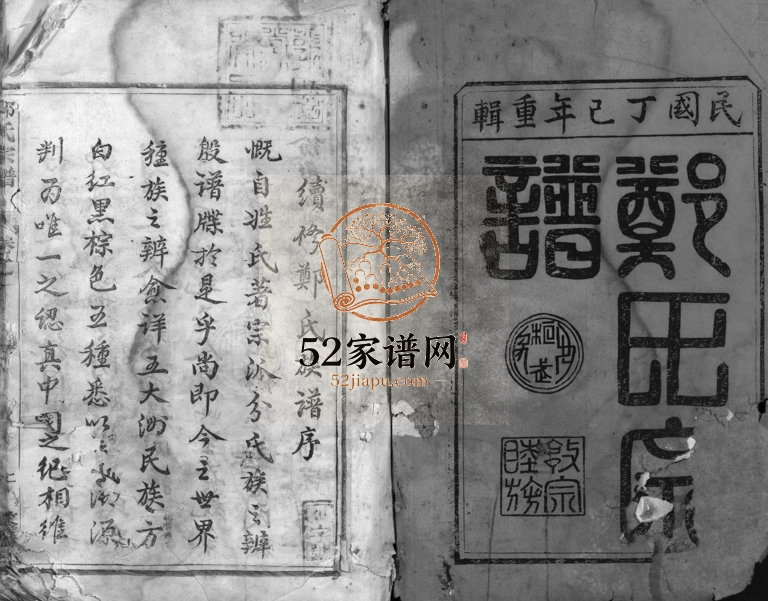 民國丁巳年重輯
鄭氏宗
譜
敦宗
睦族
續修鄭氏族譜序
慨自姓氏著宗派分氏族之辦
殷譜牒於是乎尚即今之世界
種族之辨愈詳五大洲民族方
白紅黑棕色五種悉以
源
判為唯一之認真中國之
相維
52家谱网
52jiapu.com